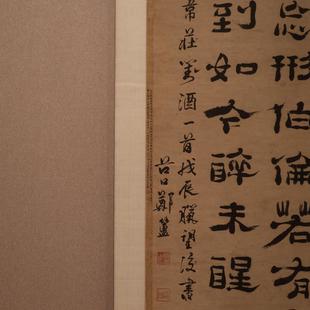 忘形伯倫若有
到如今醉未醒
韋莊對酒一首戊辰臘望後書
谷口鄭簠